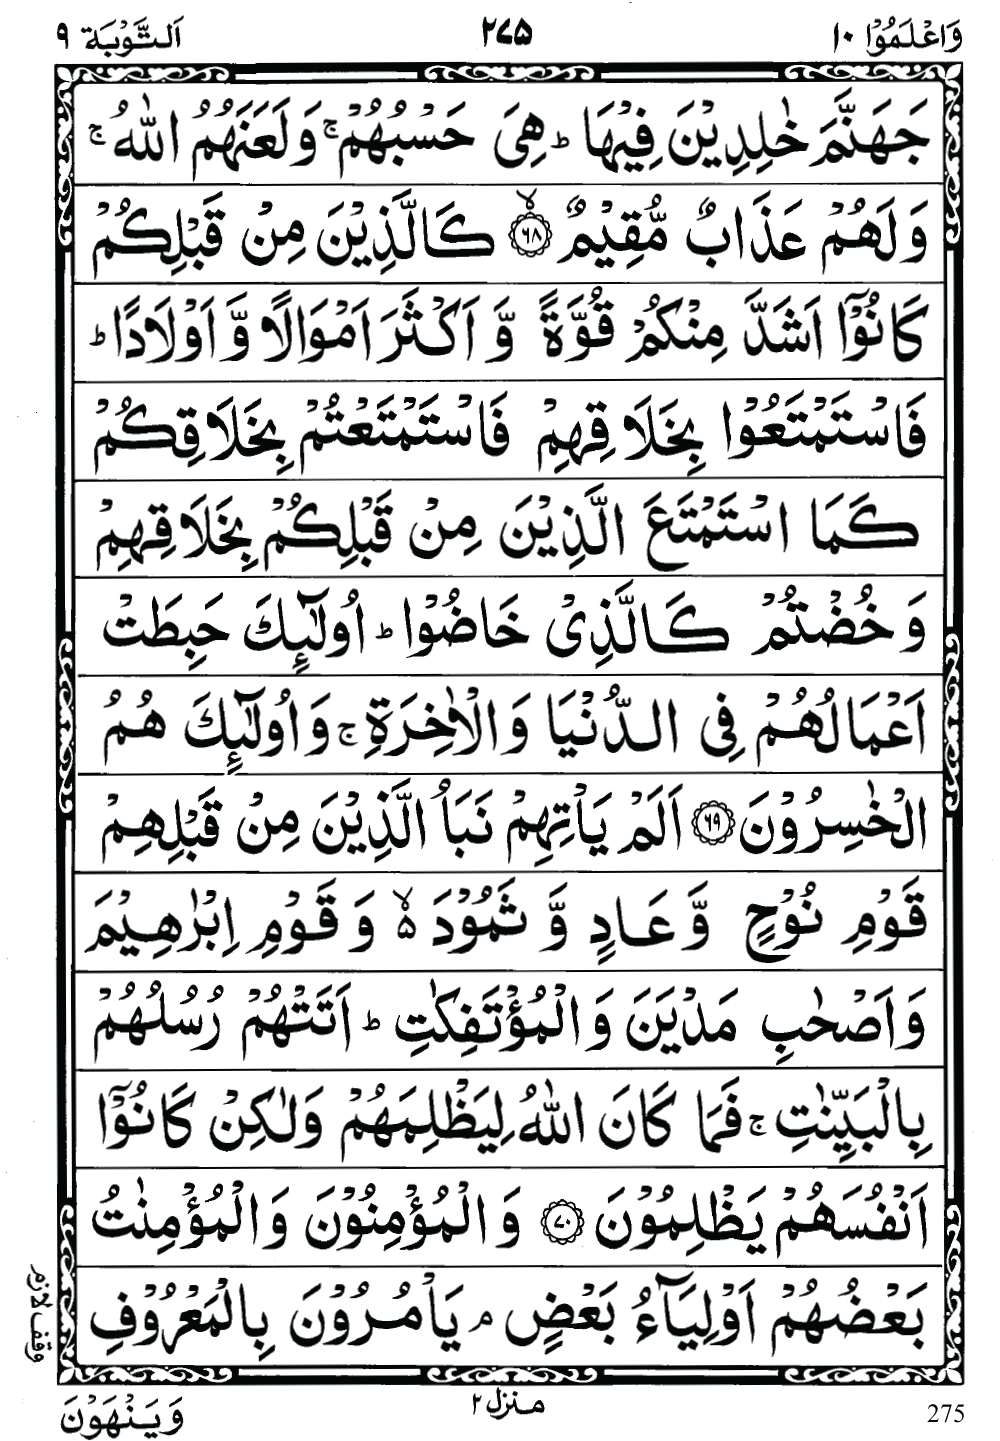 وَاعْلَمُوْۤا ١٠ ٢٧٥ اَلتَّوْبَة ٩
جَهَنَّمَ خٰلِدِيْنَ فِيْهَا ؕ هِيَ حَسْبُهُمْ ۚ وَلَعَنَهُمُ اللّٰهُ ۚ
وَلَهُمْ عَذَابٌ مُّقِيْمٌ ۙ ﴿٦٨﴾ كَالَّذِيْنَ مِنْ قَبْلِكُمْ
كَانُوْۤا اَشَدَّ مِنْكُمْ قُوَّةً وَّ اَكْثَرَ اَمْوَالًا وَّ اَوْلَادًا ؕ
فَاسْتَمْتَعُوْا بِخَلَاقِهِمْ فَاسْتَمْتَعْتُمْ بِخَلَاقِكُمْ
كَمَا اسْتَمْتَعَ الَّذِيْنَ مِنْ قَبْلِكُمْ بِخَلَاقِهِمْ
وَخُضْتُمْ كَالَّذِيْ خَاضُوْا ؕ اُولٰٓئِكَ حَبِطَتْ
اَعْمَالُهُمْ فِي الدُّنْيَا وَالْاٰخِرَةِ ۚ وَاُولٰٓئِكَ هُمُ
الْخٰسِرُوْنَ ﴿٦٩﴾ اَلَمْ يَاْتِهِمْ نَبَاُ الَّذِيْنَ مِنْ قَبْلِهِمْ
قَوْمِ نُوْحٍ وَّعَادٍ وَّثَمُوْدَ ۙ۬ وَقَوْمِ اِبْرٰهِيْمَ
وَاَصْحٰبِ مَدْيَنَ وَالْمُؤْتَفِكٰتِ ؕ اَتَتْهُمْ رُسُلُهُمْ
بِالْبَيِّنٰتِ ۚ فَمَا كَانَ اللّٰهُ لِيَظْلِمَهُمْ وَلٰكِنْ كَانُوْۤا
اَنْفُسَهُمْ يَظْلِمُوْنَ ﴿٧٠﴾ وَالْمُؤْمِنُوْنَ وَالْمُؤْمِنٰتُ
بَعْضُهُمْ اَوْلِيَآءُ بَعْضٍ ۘ يَاْمُرُوْنَ بِالْمَعْرُوْفِ
وقف لازم
منزل ٢
وَيَنْهَوْنَ
275